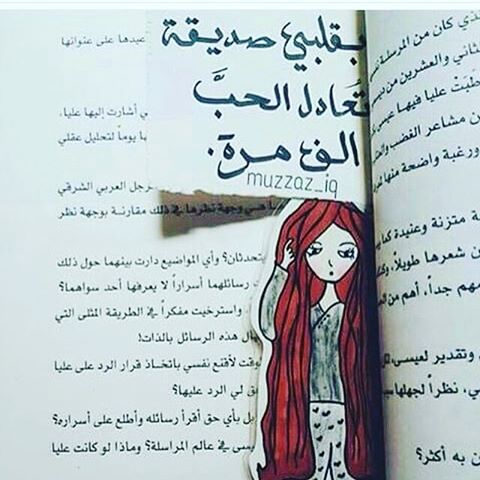 بقلبي صديقة
تعادل الحبَّ
الف مرة.
muzzaz_iq
يدها على عنوانها
ي أشارت إليها عليا،
ا يوماً لتحليل عقلي
رجل العربي الشرقي
هي وجهة نظرها في ذلك مقارنة بوجهة نظر
يتحدثان؟ وأي المواضيع دارت بينهما حول ذلك
رسائلهما أسراراً لا يعرفها أحد سواهما؟
، واسترخيت مفكراً في الطريقة المثلى التي
ال هذه الرسائل بالذات!
لوقت لأقنع نفسي باتخاذ قرار الرد على عليا
ق لي الرد عليها؟
بل بأي حق أقرأ رسائله وأطلع على أسراره؟
سى في عالم المراسلة؟ وماذا لو كانت عليا
ذي كان من المرسلة
لثاني والعشرين من
طبَتْ عليا فيها عيسى
ن مشاعر الغضب
ورغبة واضحة منها
ة متزنة وعنيدة كما
ن شعرها طويلاً،
مهم جداً، أهم من
وتقدير لعيسى،
ي، نظراً لجهلها
ن به أكثر؟